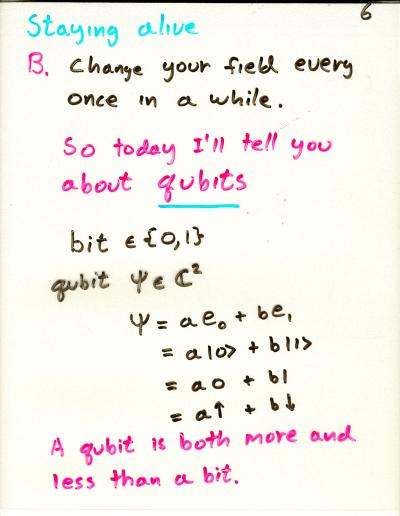 6
Staying alive
B. Change your field every
once in a while.
So today I'll tell you
about qubits
bit ∈ {0,1}
qubit Ψ ∈ ℂ²
Ψ = a e₀ + b e₁
= a|0> + b|1>
= a0 + b1
= a↑ + b↓
A qubit is both more and
less than a bit.